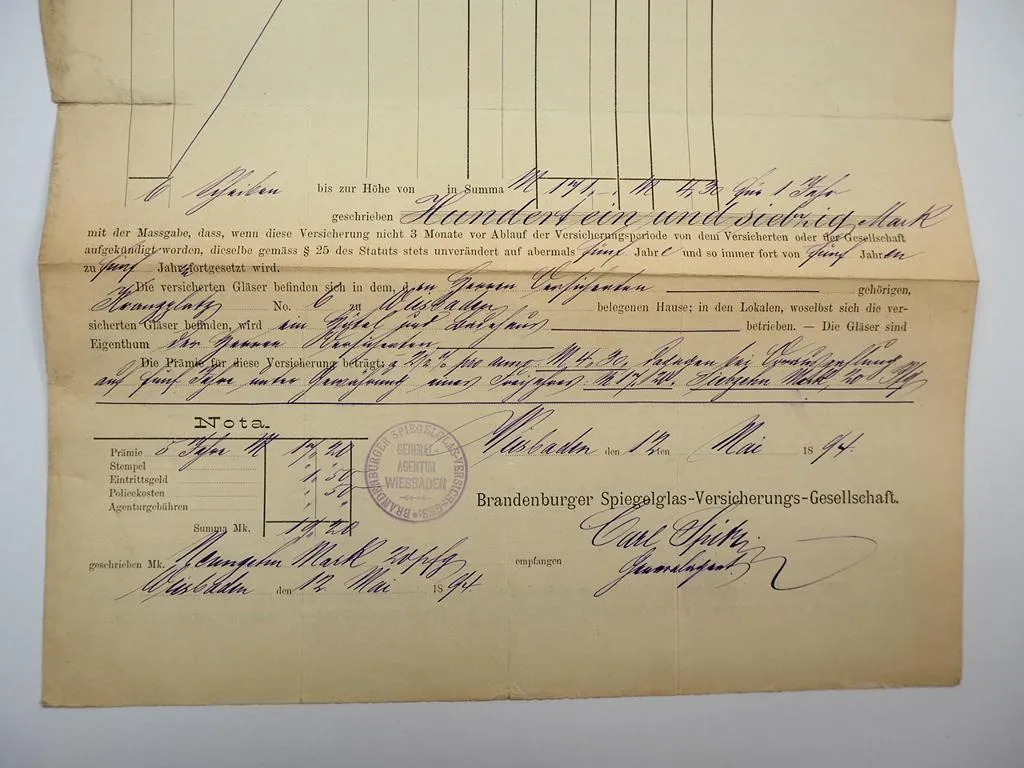 6 Scheiben bis zur Höhe von in Summa M 171,. M 4,30 für 1 Jahr
geschrieben Hundert ein und siebzig Mark
mit der Massgabe, dass, wenn diese Versicherung nicht 3 Monate vor Ablauf der Versicherungsperiode von dem Versicherten oder der Gesellschaft
aufgekündigt worden, dieselbe gemäss § 25 des Statuts stets unverändert auf abermals fünf Jahre und so immer fort von fünf Jahren
zu fünf Jahren fortgesetzt wird.
Die versicherten Gläser befinden sich in dem, den Herren Versicherten gehörigen,
Kranzplatz No. 6 zu Wiesbaden belegenen Hause; in den Lokalen, woselbst sich die ver-
sicherten Gläser befinden, wird ein Hôtel und Badehaus betrieben. — Die Gläser sind
Eigenthum der Herren Versicherten.
Die Prämie für diese Versicherung beträgt: à 2½ % pro anno M. 4.30. bei Vorauszahlung
auf fünf Jahre unter Gewährung eines Freijahres M 17.20. Siebzehn Mark 20 Pfg
Nota.
Prämie 5 Jahre M 17,20
Stempel " "
Eintrittsgeld 1,50
Policekosten " 50
Agenturgebühren " "
Summa Mk. 19,20
geschrieben Mk. Neunzehn Mark 20 Pfg
Wiesbaden den 12 Mai 1894.
BRANDENBURGER SPIEGELGLAS-VERSICH.-GES.
GENERAL-
AGENTUR
WIESBADEN
Wiesbaden den 12ten Mai 1894.
Brandenburger Spiegelglas-Versicherungs-Gesellschaft.
empfangen Carl
Generalagent.